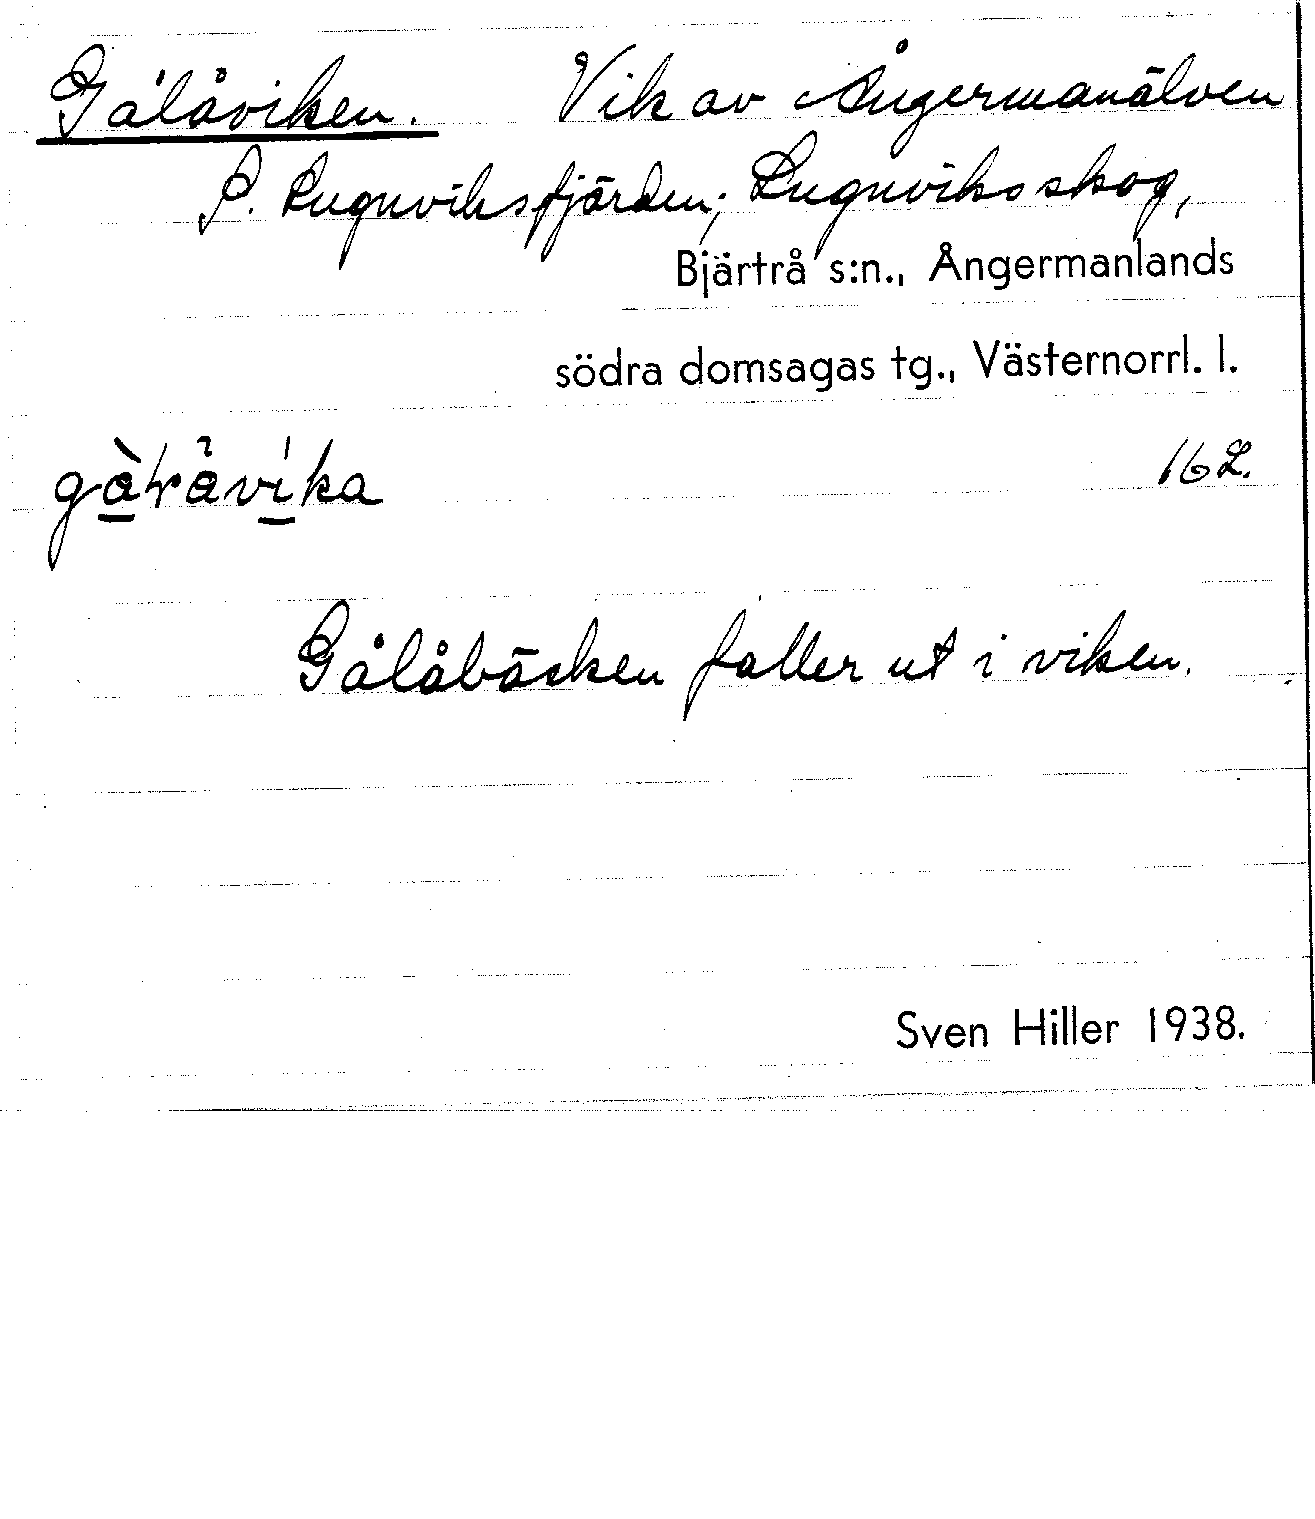 Gålåviken. Vik av Ångermanälven
P. Lugnviksfjärden; Lugnviks skog,
Bjärtrå s:n., Ångermanlands
södra domsagas tg., Västernorrl. l.
16 L.
Gålåbäcken faller ut i viken.
Sven Hiller 1938.